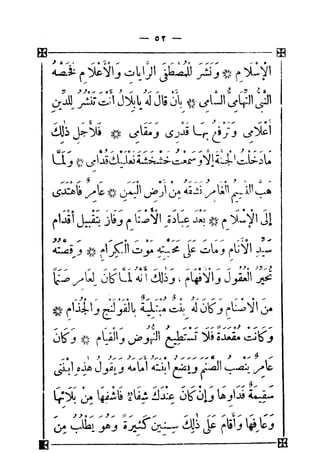 — ٥٢ —
الْإِسْلَامِ * وَنَشَرَ الْمُصْطَفَى الرَّايَاتِ وَالْأَعْلَامَ فَخَصَّهُ
النَّبِيُّ التِّهَامِيُّ السَّامِي * بِأَنْ قَالَ لَهُ يَا بِلَالُ أَنْتَ تَنْشُرُ لِلدِّينِ
أَعْلَامِي وَتَرْفَعُ بِهَا قَدْرِي وَمَقَامِي * فَلِأَجْلِ ذٰلِكَ
مَا دَخَلْتُ الْجَنَّةَ إِلَّا وَسَمِعْتُ خَشْخَشَةَ نَعْلَيْكَ قُدَّامِي * وَلَمَّا
هَبَّ النَّسِيمُ الْعَامِرُ نَشْقُهُ مِنْ أَرْضِ الْيَمَنِ * عَامِرٌ فَاهْتَدَى
إِلَى الْإِسْلَامِ * بَعْدَ عِبَادَةِ الْأَصْنَامِ وَفَازَ بِتَقْبِيلِ أَقْدَامِ
سَيِّدِ الْأَنَامِ وَمَاتَ عَلَى مَحَبَّتِهِ مَوْتَ الْكِرَامِ * وَقِصَّتُهُ
تُحَيِّرُ الْعُقُولَ وَالْأَفْهَامَ ، وَذٰلِكَ أَنَّهُ لَمَّا كَانَ لِعَامِرٍ صَنَمًا
مِنَ الْأَصْنَامِ وَكَانَ لَهُ بِنْتٌ مُبْتَلِيَةٌ بِالْقُولَنْجِ وَالْجُذَامِ *
وَكَانَتْ مُقْعَدَةً فَلَا تَسْتَطِيعُ النُّهُوضَ وَالْقِيَامَ * وَكَانَ
عَامِرٌ يَنْصِبُ الصَّنَمَ وَيَضَعُ ابْنَتَهُ أَمَامَهُ وَيَقُولُ هٰذِهِ ابْنَتِي
سَقِيمَةٌ فَدَاوِهَا وَإِنْ كَانَ عِنْدَكَ شِفَاءٌ فَاشْفِهَا مِنْ بَلَائِهَا
وَعَافِهَا وَأَقَامَ عَلَى ذٰلِكَ سِنِينَ كَثِيرَةً وَهُوَ يَطْلُبُ مِنَ